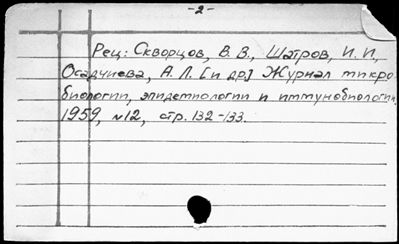 -2-
Рец: Скворцов, В. В., Шатров, И. И.,
Осадчиева, А. Л. [и др.] Журнал микро-
биологии, эпидемиологии и иммунобиологии,
1959, №12, стр. 132-133.